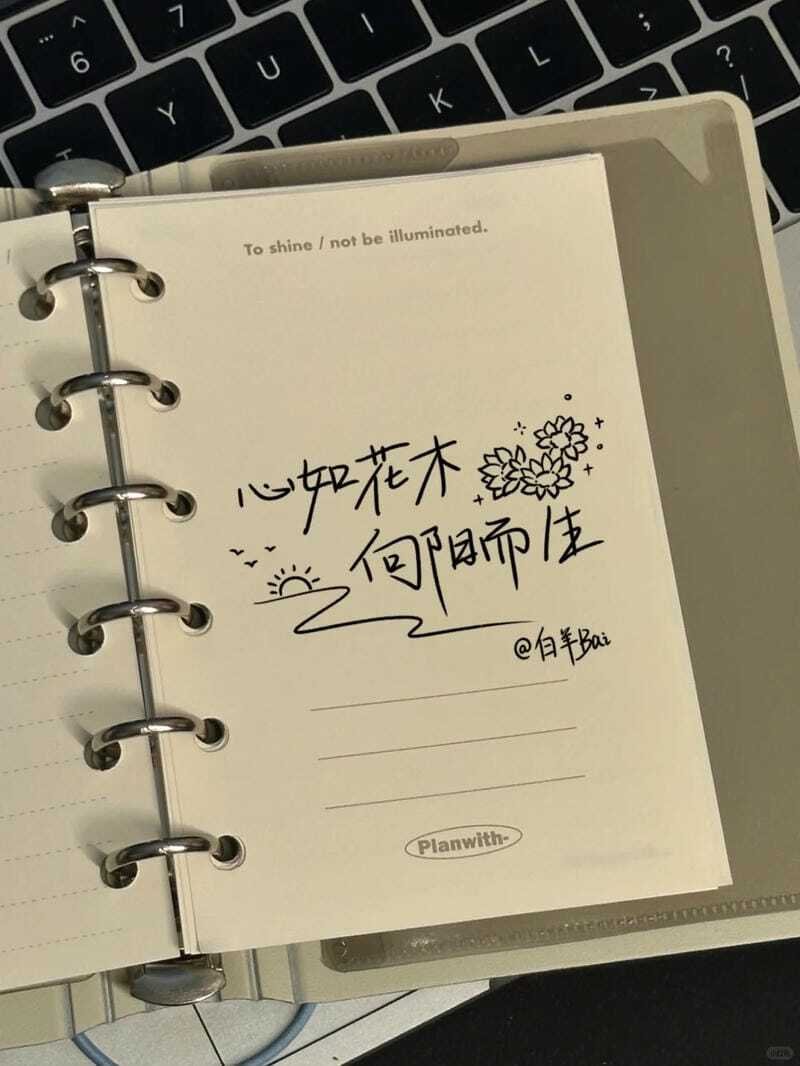 … ^
6
7
Y
U
I
K
L
;
>
?
/
To shine / not be illuminated.
心如花木
向阳而生
@白羊Bai
Planwith-